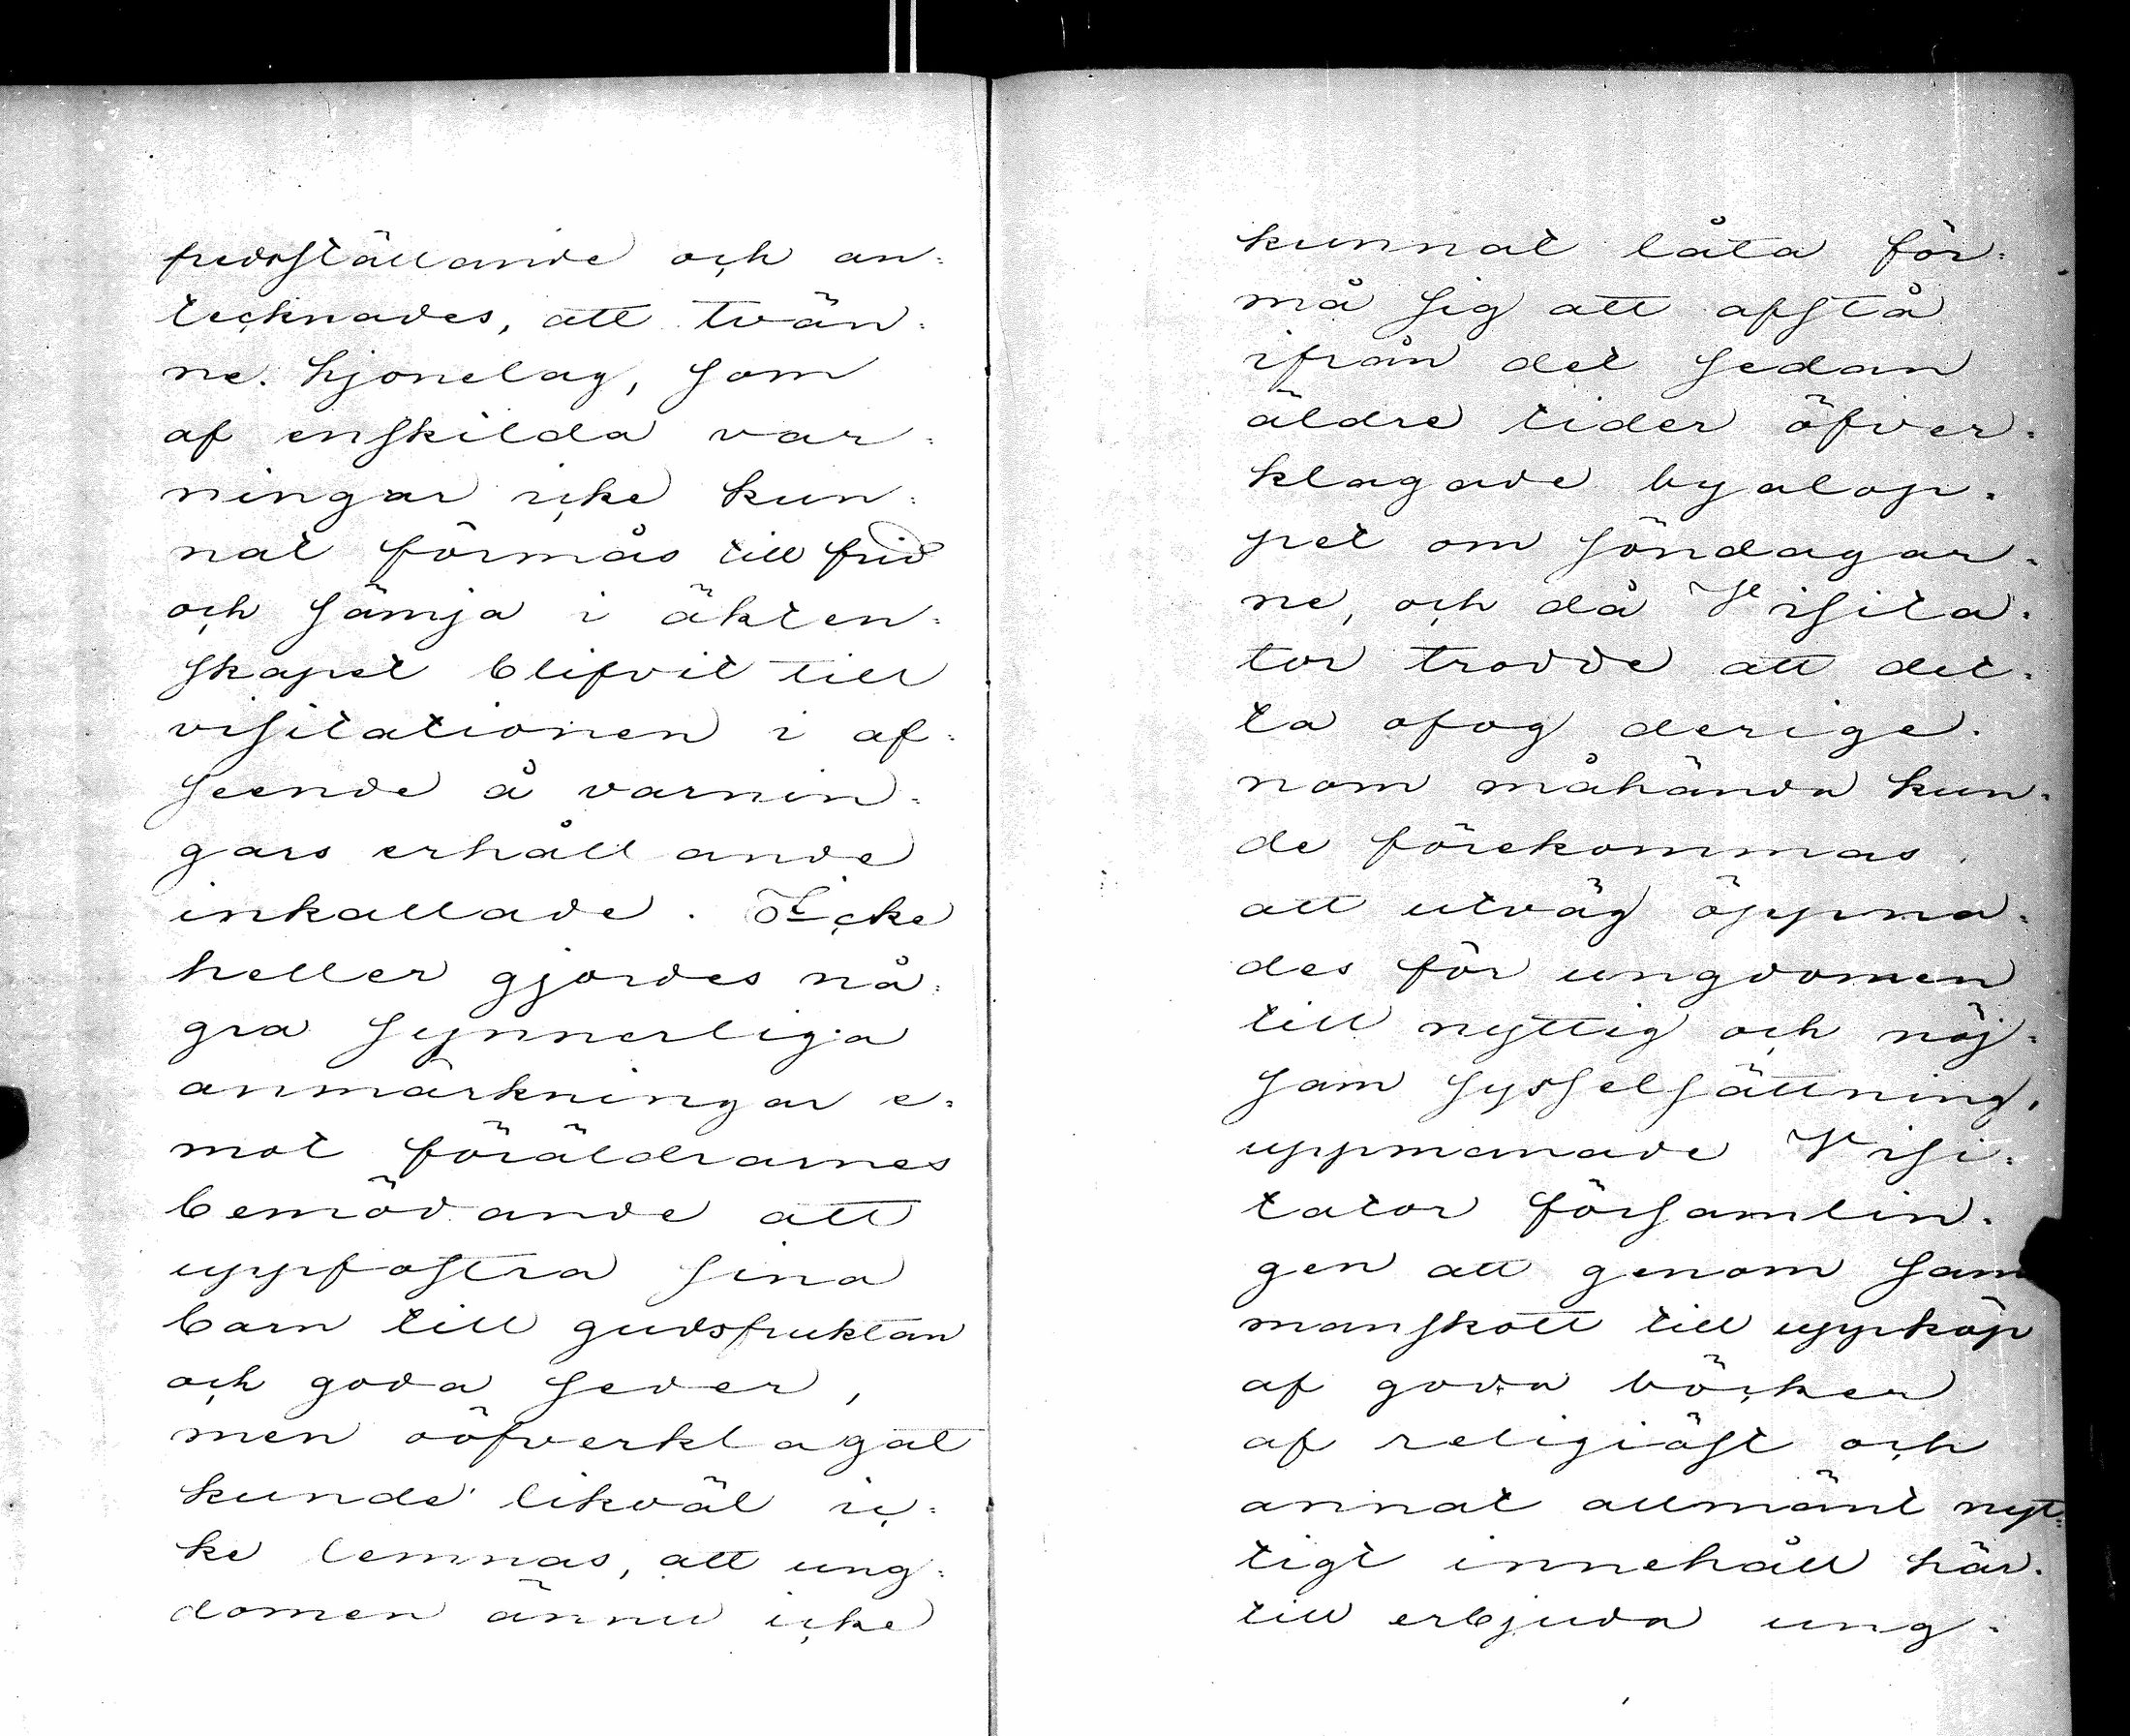 fredsställande och an=
tecknades, att tvän=
ne hjonelag, som
af enskilda var=
ningar icke kun=
nat förmås till frid
och sämja i äkten=
skapet blifvit till
visitationen i af=
seende å varnin=
gars erhållande
inkallade. Icke
heller gjordes nå=
gra synnerliga
anmärkningar e=
mot föräldrarnes
bemödande att
uppfostra sina
barn till gudsfruktan
och goda seder,
men oöfverklagat
kunde likväl ic=
ke lemnas, att ung=
domen ännu icke
kunnat låta för=
må sig att afstå
ifrån det sedan
äldre tider öfver=
klagade byalop=
pet om söndagar=
ne, och då Visita=
tor trodde att det=
ta ofog derige=
nom måhända kun=
de förekommas,
att utväg öppna=
des för ungdomen
till nyttig och nöj=
sam sysselsättning,
uppmanade Visi=
tator församlin=
gen att genom sam
manskott till uppköp
af goda böcker
af religiöst och
annat allmänt nyt=
tigt innehåll här=
till erbjuda ung=